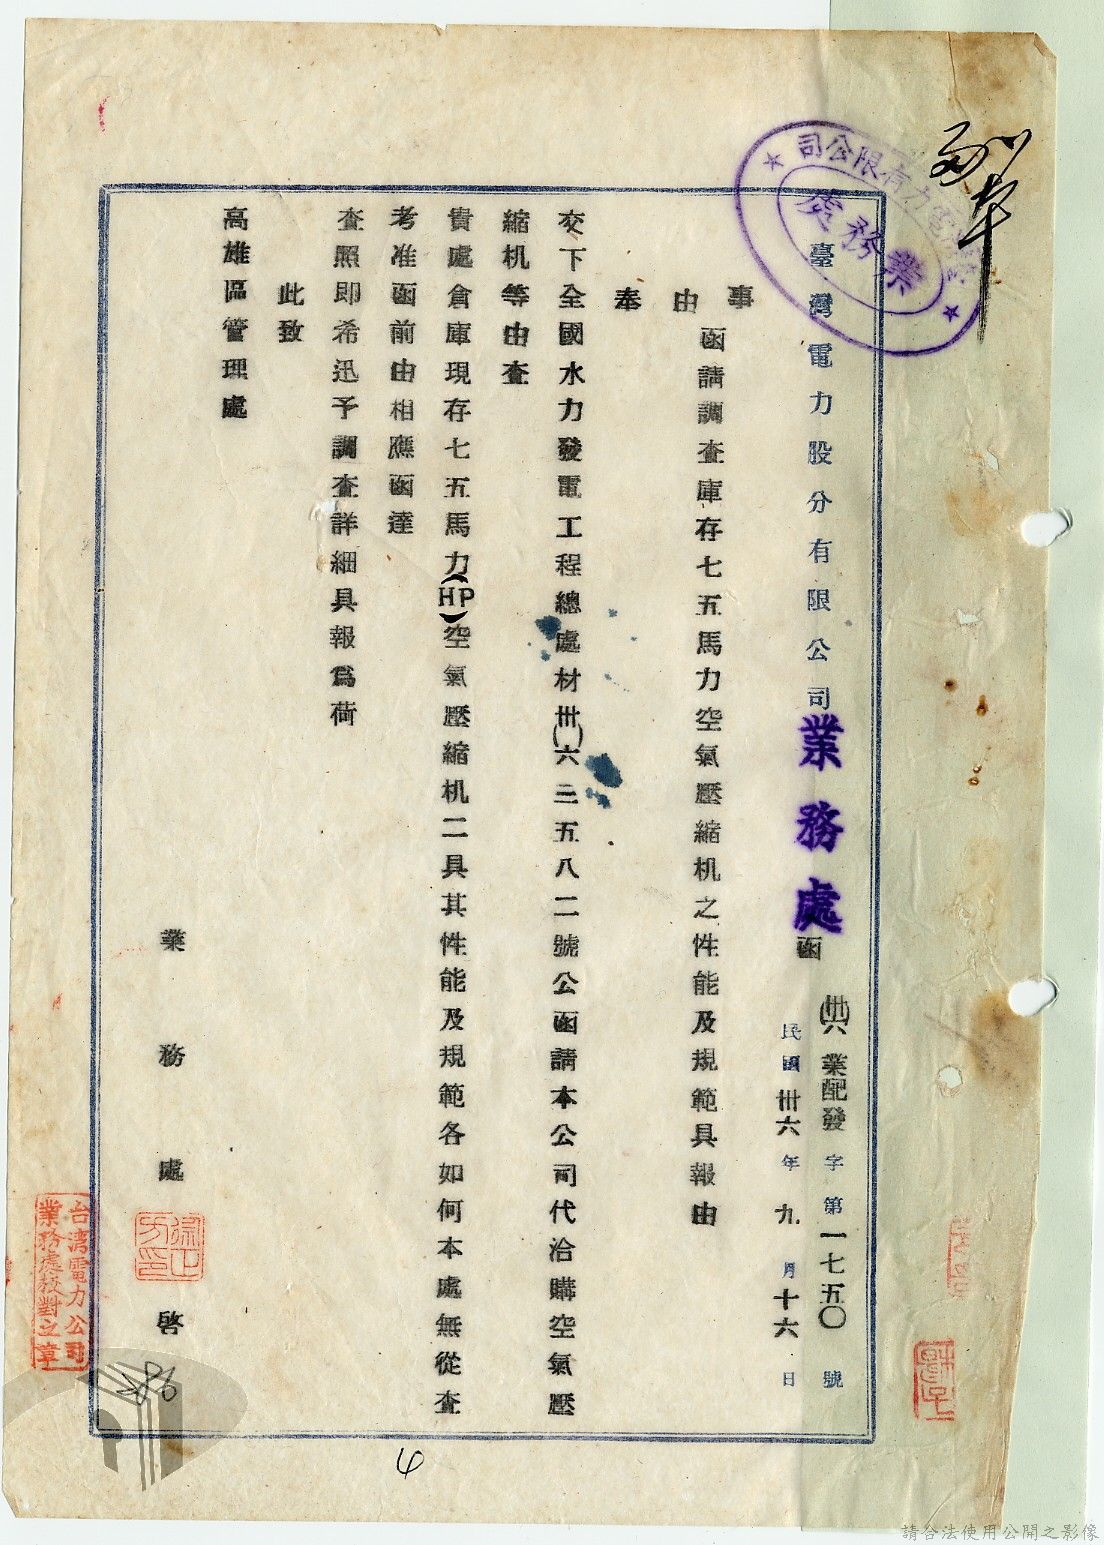 臺灣電力股分有限公司業務處函
(卅六)業配發字第一七五〇號
民國卅六年九月十六日
事由
函請調查庫存七五馬力空氣壓縮机之性能及規範具報由
奉
交下全國水力發電工程總處材卅()六三五八二號公函請本公司代洽購空氣壓
縮机等由查
貴處倉庫現存七五馬力(HP)空氣壓縮机二具其性能及規範各如何本處無從查
考准函前由相應函達
查照即希迅予調查詳細具報為荷
此致
高雄區管理處
業務處啓
臺灣電力有限公司
業務處
台湾電力公司
業務處校對之章
4
請合法使用公開之影像